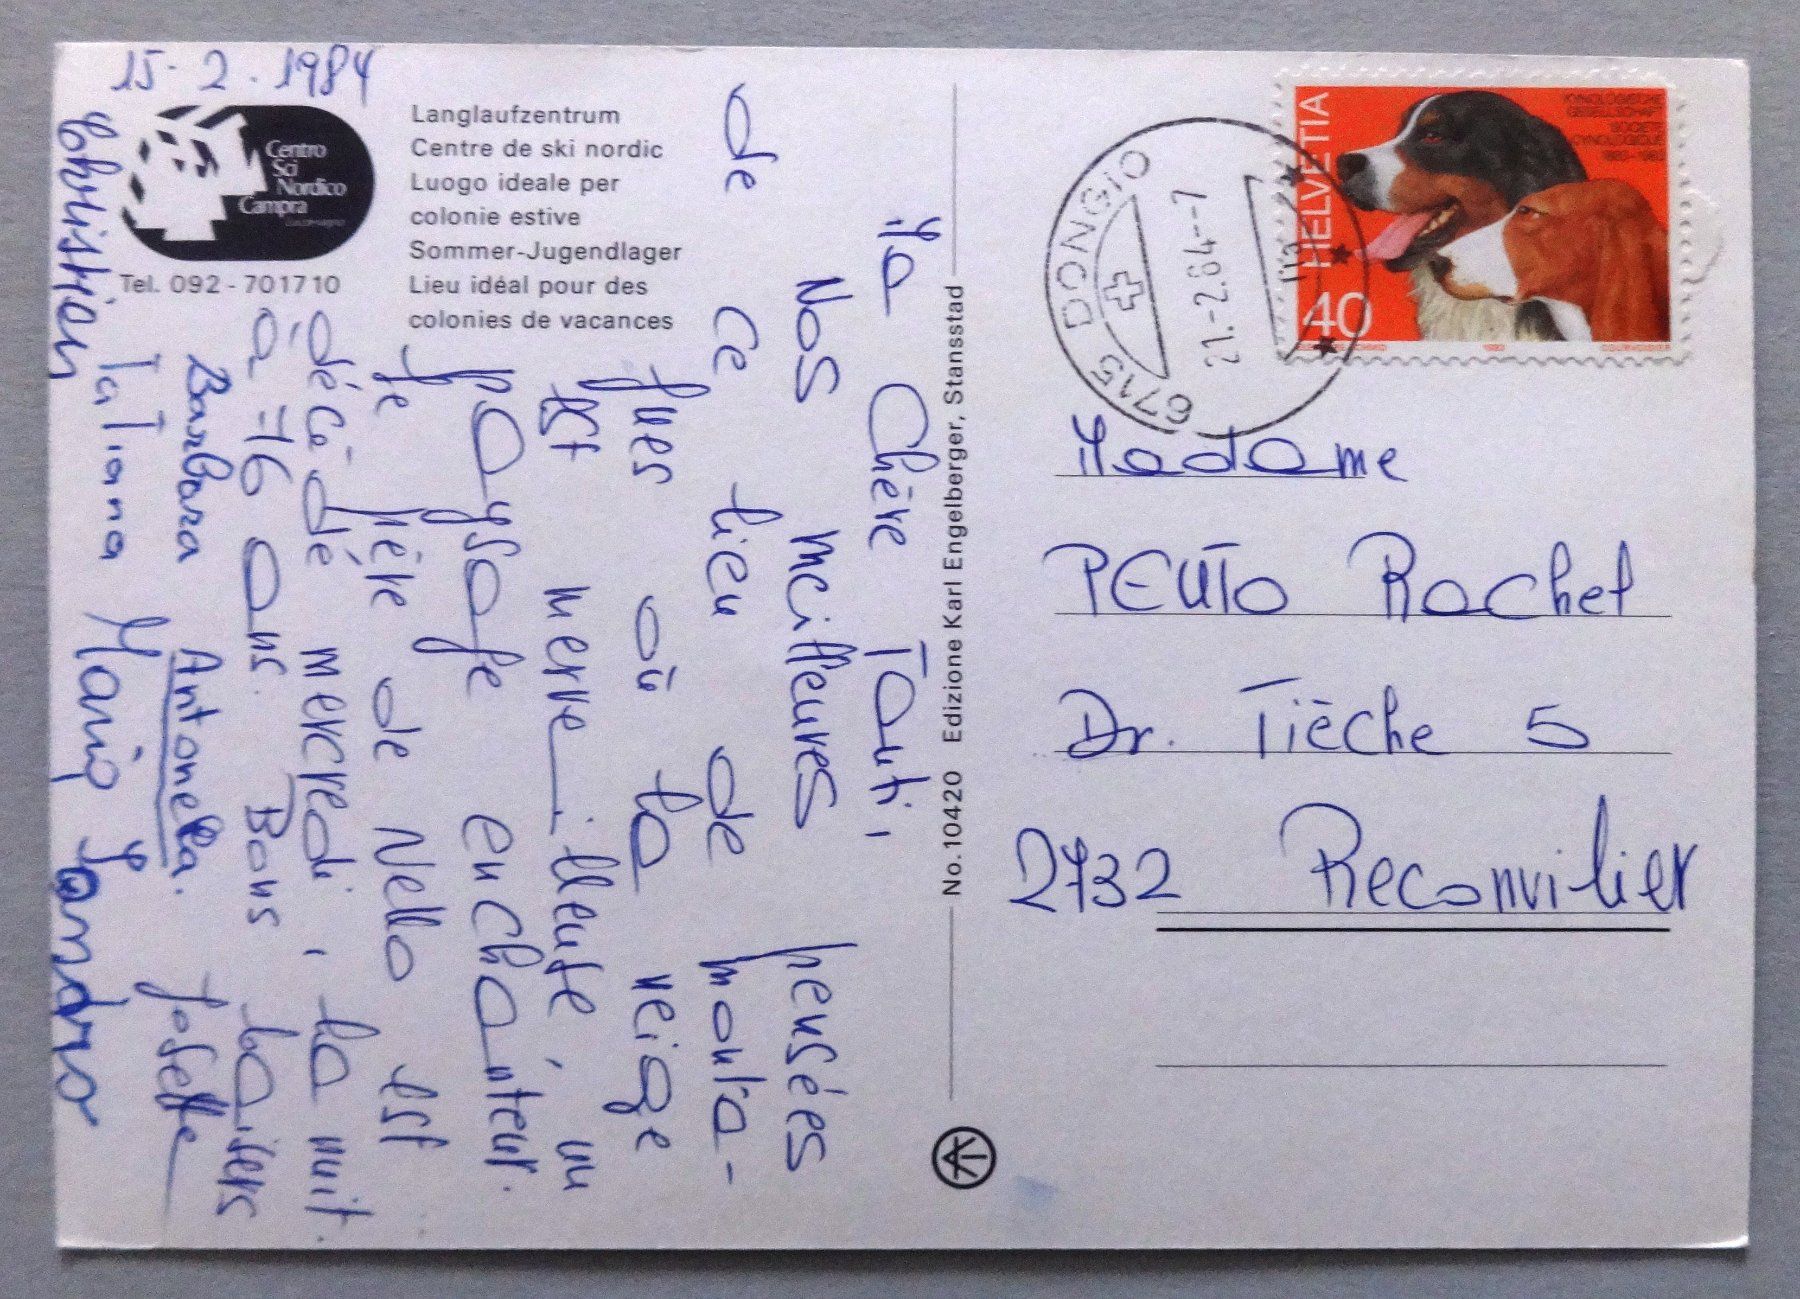 15.2.1984
Centro
Sci
Nordico
Campra
Tel. 092-701710
Langlaufzentrum
Centre de ski nordic
Luogo ideale per
colonie estive
Sommer-Jugendlager
Lieu idéal pour des
colonies de vacances
Ma Chère Tanti,
Nos meilleures pensées
de ce lieu de monta-
gnes où la neige
est merveilleuse, un
paysage enchanteur.
Le père de Nello est
décédé mercredi, la nuit.
à 76 ans. Bons baisers
Barbara Antonella. Josette
Tatiana Mario
Christian Sandro
No. 10420 Edizione Karl Engelberger, Stansstad
6715 DONGIO
21.-2.84.-7
HELVETIA
KYNOLOGISCHE
GESELLSCHAFT
SOCIETE
CYNOLOGIQUE
1883-1983
40
1983
Madame
PEUTO Rachel
Dr. Tièche 5
2732 Reconvilier